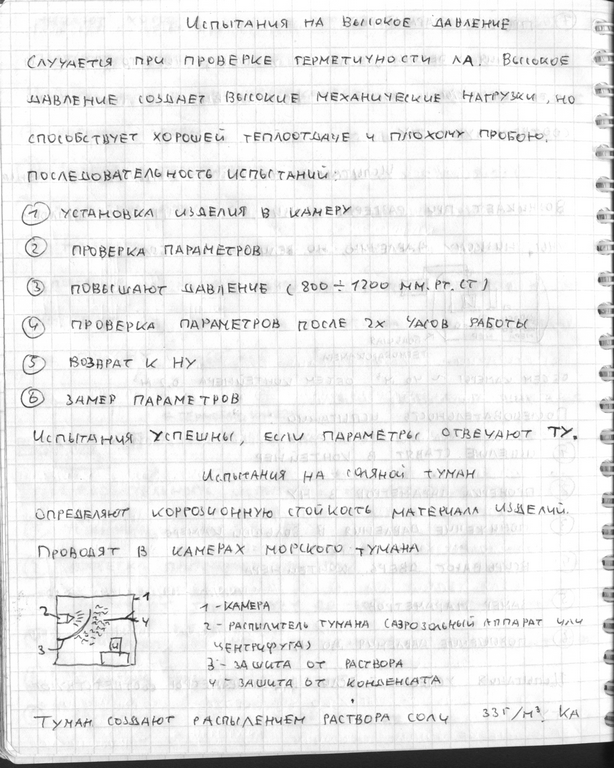 Испытания на высокое давление
Случается при проверке герметичности ЛА. Высокое
давление создает высокие механические нагрузки, но
способствует хорошей теплоотдаче и плохому пробою.
Последовательность испытаний:
1 Установка изделия в камеру
2 Проверка параметров
3 Повышают давление (800 ÷ 1200 мм.рт.ст)
4 Проверка параметров после 2х часов работы
5 Возврат к НУ
6 Замер параметров
Испытания успешны, если параметры отвечают ТУ.
Испытания на соляной туман
Определяют коррозионную стойкость материала изделий.
Проводят в камерах морского тумана
1 - камера
2 - распылитель тумана (аэрозольный аппарат или
центрифуга)
3 - зашита от раствора
4 - зашита от конденсата
1
2
4
И
3
Туман создают распылением раствора соли 33г/м³. Ка